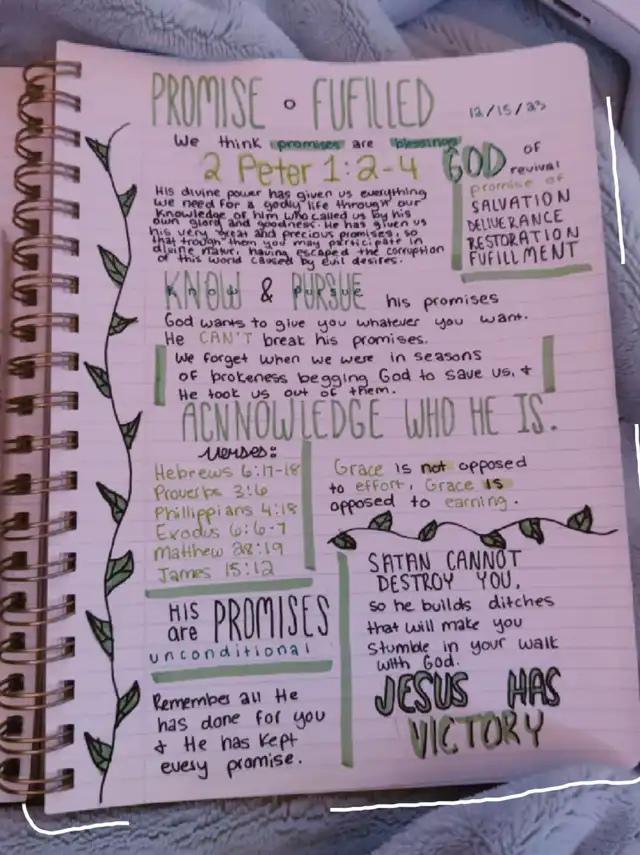 PROMISE o FUFILLED
12/15/23
We think promises are blessings
2 Peter 1:2-4
His divine power has given us everything
we need for a godly life through our
knowledge of him who called us by his
own glory and goodness. He has given us
his very great and precious promises, so
that trough them you may participate in
divine natur, having escaped the corruption
of this world caused by evil desires.
GOD of
revival
promise of
SALVATION
DELIVERANCE
RESTORATION
FUFILLMENT
KNOW & PURSUE his promises
God wants to give you whatever you want.
He CAN'T break his promises.
We forget when we were in seasons
of brokeness begging God to save us, +
He took us out of them.
ACNNOWLEDGE WHO HE IS.
verses:
Hebrews 6:17-18
Proverbs 3:6
Phillippians 4:18
Exodus 6:6-7
Matthew 28:19
James 15:12
Grace is not opposed
to effort, Grace is
opposed to earning.
HIS
are PROMISES
unconditional
Remember all He
has done for you
+ He has kept
every promise.
SATAN CANNOT
DESTROY YOU,
so he builds ditches
that will make you
stumble in your walk
with God.
JESUS HAS
VICTORY